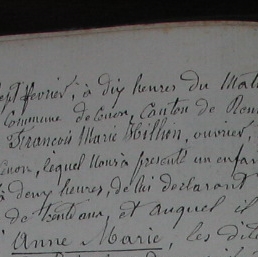 sept février, à dix heures du Mati
Commune de Cenon, Canton de
François Marie Hillion, ouvrier,
Cenon, lequel nous a présenté un enfan
à deux heures, de lui déclarant
de trente ans, et auquel il
Anne Marie, les dite